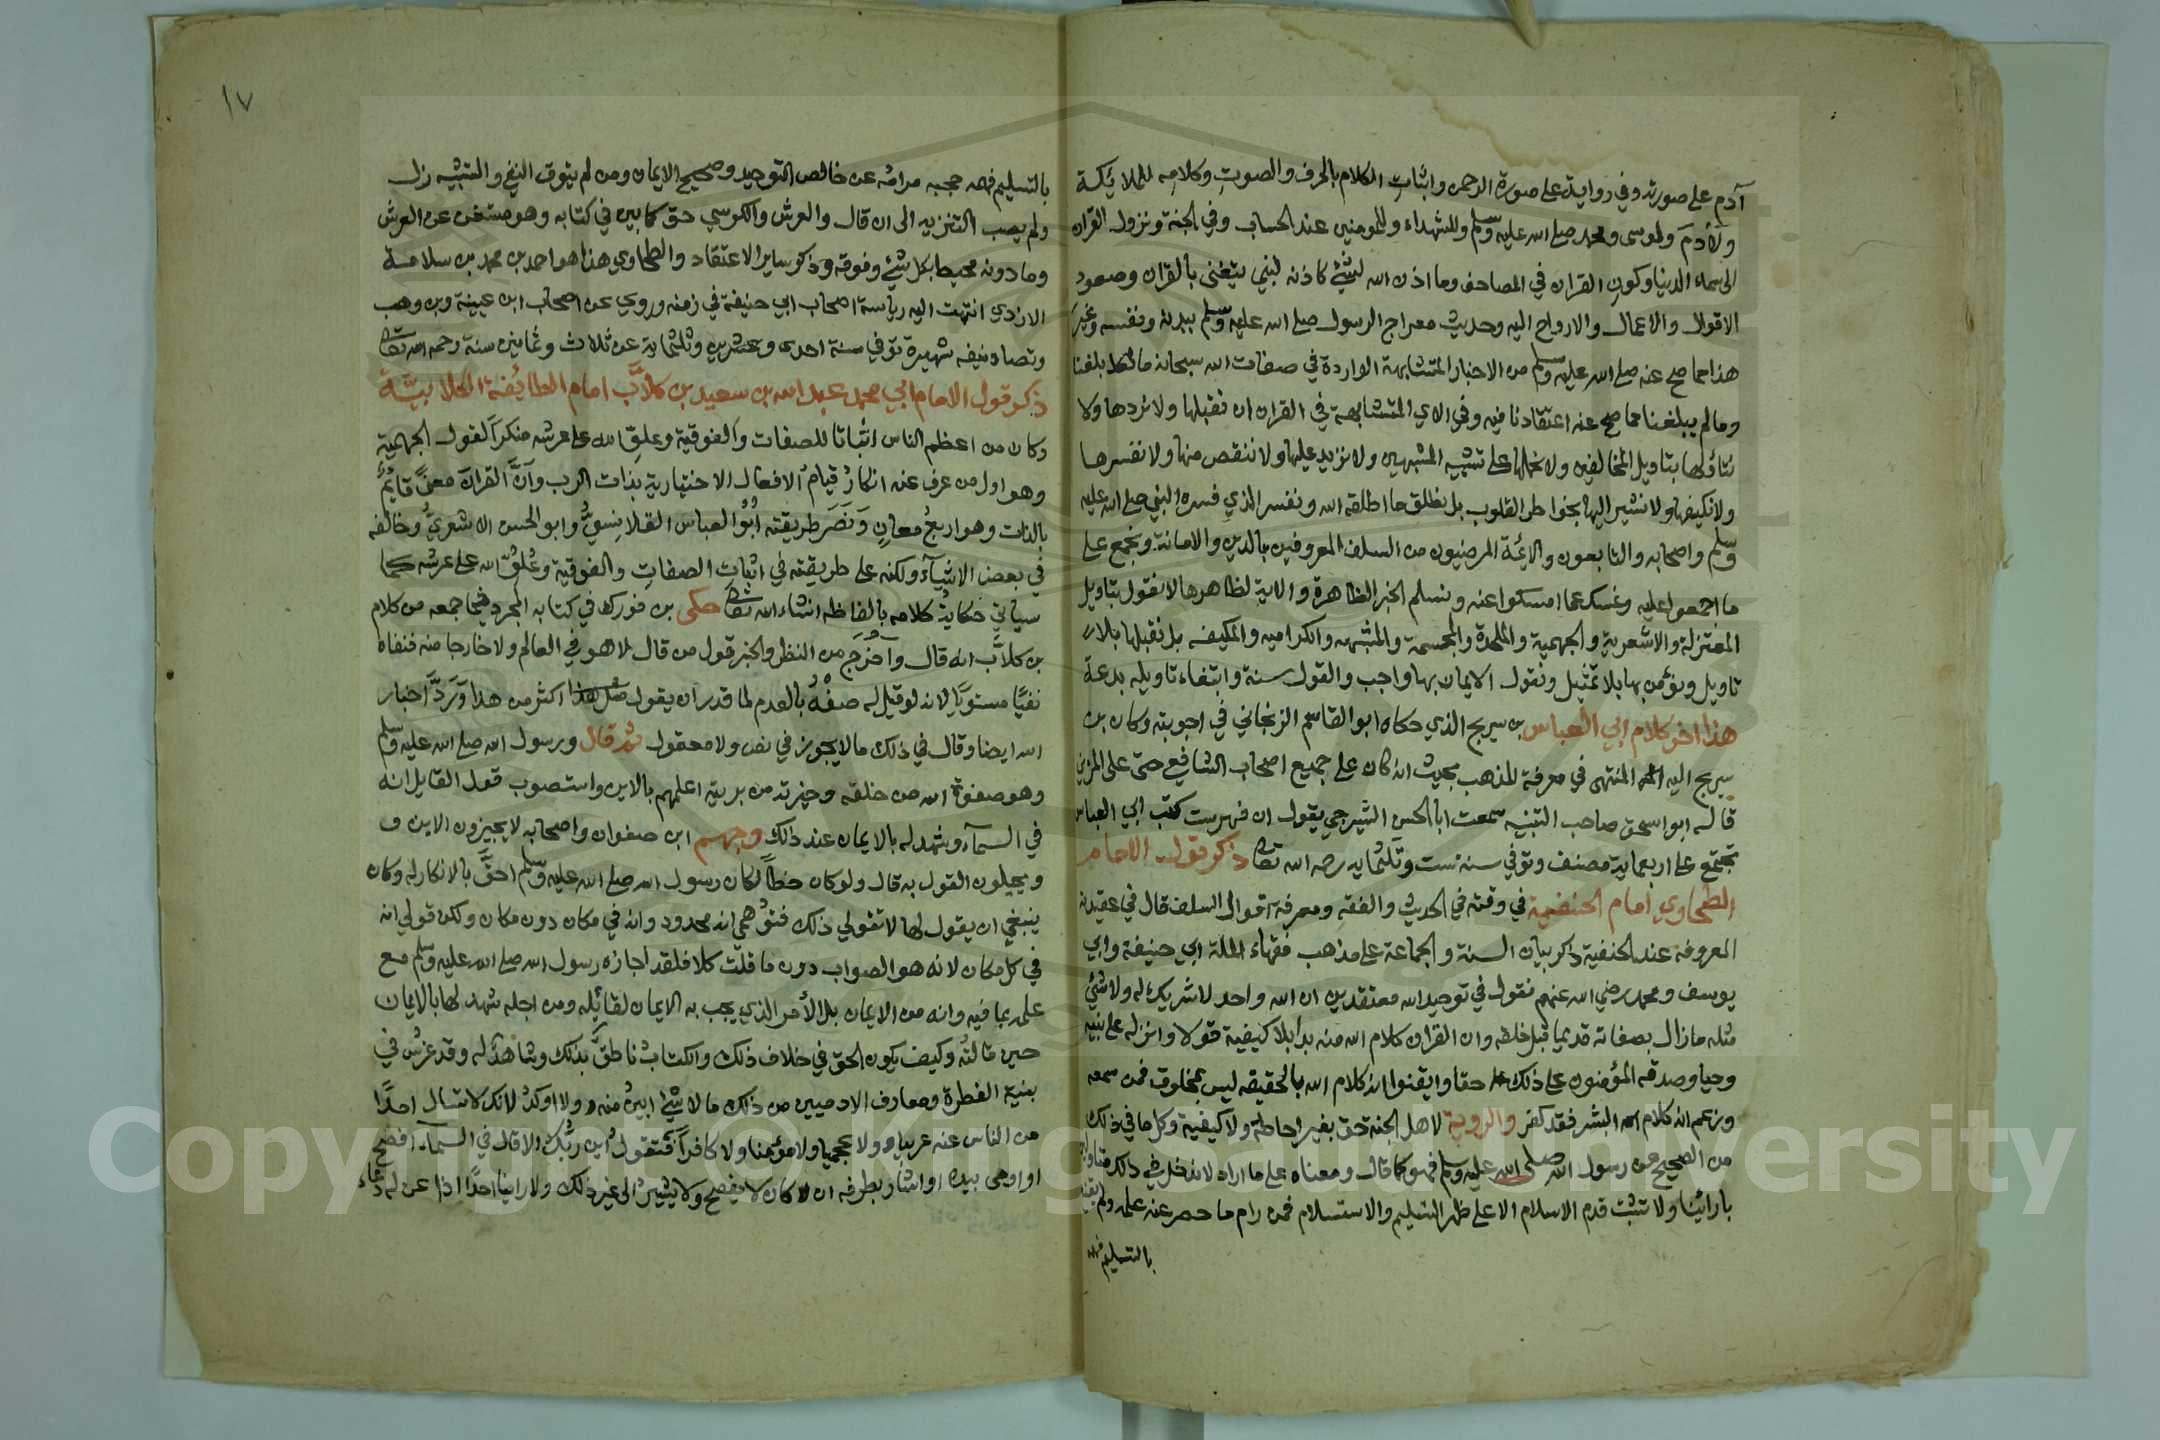 آدم على صورته وفي رواية على صورة الرحمن واثبات الكلام بالحرف والصوت وكلامه للملائيكة
ولآدم ولموسى ومحمد صلى الله عليه وسلم وللشهداء وللمومنين عند الحساب وفي الجنة ونزول القران
الى سماء الدنيا وكون القران في المصاحف وما اذن الله لشيء كاذنه لنبي يتغنى بالقران وصعود
الاقوال والاعمال والارواح اليه وحديث معراج الرسول صلى الله عليه وسلم ببدنه ونفسه وغير
هذا مما صح عنه صلى الله عليه وسلم من الاخبار المتشابهة الواردة في صفات الله سبحانه ما بلغنا
ومالم يبلغنا مما صح عنه اعتقادنا فيه وفي الاي المتشابهة في القران ان نقبلها ولا نردها ولا
نتاولها بتاويل المخالفين ولا نحملها على تشبيه المشبهين ولا نزيد عليها ولا ننقص منها ولا نفسرها
ولا نكيفها ولا نشير اليها بخواطر القلوب بل نطلق ما اطلقه الله ونفسر الذي فسره النبي صلى الله عليه
وسلم واصحابه والتابعون والائمة المرضيون من السلف المعروفين بالدين والامانة ونجمع على
ما اجمعوا عليه ونمسك عما امسكوا عنه ونسلم الخبر الظاهرة والاية لظاهرها لا نقول بتاويل
المعتزلة والاشعرية والجهمية والملحدة والمجسمة والمشبهه والكراميه والمكيفه بل نقبلها بلا
تاويل ونؤمن بها بلا تمثيل ونقول الايمان بها واجب والقول سنة وابتغاء تاويله بدعة
هذا اخر كلام ابي العباس بن سريج الذي حكاه ابو القاسم الزنجاني في اجوبته وكان بن
سريج اليه المنتهى في معرفة المذهب بحيث انه كان على جميع اصحاب الشافعي حتى على المزني
قاله ابو اسحق صاحب التنبيه سمعت ابا الحسن الشيرجي يقول ان فهرست كتب ابي العباس
تجتمع على اربعماية مصنف وتوفي سنه ست وثلثمايه رحمه الله تعالى ذكر قول الامام
الطحاوي امام الحنفية في وقته في الحديث والفقه ومعرفة اقوال السلف قال في عقيدته
المعروفه عند الحنفية ذكر بيان السنة والجماعة على مذهب فقهاء الملة ابي حنيفة وابي
يوسف ومحمد رضي الله عنهم نقول في توحيد الله معتقدين ان الله واحد لا شريك له ولا شيء
مثله مازال بصفاته قديما قبل خلقه وان القران كلام الله منه بدا بلا كيفية قولا وانزله على نبيه
وحيا وصدقه المؤمنون على ذلك حقا وايقنوا انه كلام الله بالحقيقه ليس بمخلوق فمن سمعه
وزعم انه كلام البشر فقد كفر والروية لاهل الجنة حق بغير احاطة ولا كيفية وكل ما في ذلك
من الصحيح عن رسول الله صلى الله عليه وسلم فهو كما قال ومعناه على ما اراد لا ندخل في ذلك متاولين
بارائينا ولا تثبت قدم الاسلام الا على ظهر التسليم والاستسلام فمن رام ما حصر عنه علمه ولم يقنع
بالتسليم فهمه
١٧
بالتسليم فهمه حجبه مرامه عن خالص التوحيد وصحيح الايمان ومن لم يتوق النفي والتشبيه زل
ولم يصب التنزيه الى ان قال والعرش والكرسي حق كما بين في كتابه وهو مستغن عن العرش
وما دونه محيط بكل شئ وفوقه وذكر ساير الاعتقاد والطحاوي هذا هو احمد بن محمد بن سلامة
الازدي انتهت اليه رياسة اصحاب ابي حنيفة في زمنه وروي عن اصحاب ابن عيينة وبن وهب
وتصانيفه شهيرة توفي سنة احدى وعشرين وثلثماية عن ثلاث وثمانين سنة رحمه الله تعالى
ذكر قول الامام ابي محمد عبد الله بن سعيد بن كلاب امام الطائفة الكلابية
وكان من اعظم الناس اثباتا للصفات والفوقية وعلو الله على عرشه منكرا لقول الجهمية
وهو اول من عرف عنه انكار قيام الافعال الاختيارية بذات الرب وان القران معنى قايم
بالذات وهو اربع معان ونصر طريقته ابو العباس القلانسي وابو الحسن الاشعري وخالفه
في بعض الاشياء ولكنه على طريقته في اثبات الصفات والفوقية وعلو الله على عرشه كما
سياتي حكاية كلامه بالفاظه انشاء الله تعالى حكى بن فورك في كتابه المجرد فيما جمعه من كلام
بن كلاب انه قال واخرج من النظر والخبر قول من قال لا هو في العالم ولا خارجا منه فنفاه
نفيا مستويا لانه لو قيل له صفه بالعدم لما قدر ان يقول اكثر من هذا ورد اخبار
الله ايضا وقال في ذلك ما لا يجوز في نص ولا معقول ثم قال ورسول الله صلى الله عليه وسلم
وهو صفوة الله من خلقه وخيرته من بريته اعلمهم بالاين واستصوب قول القايل انه
في السماء وشهد له بالايمان عند ذالك وجهم ابن صفوان واصحابه لا يجيزون الاين و
ويحيلون القول به قال ولو كان خطأ لكان رسول الله صلى الله عليه وسلم احق بالانكار له وكان
ينبغي ان يقول لها لا تقولي ذلك فتوهمي انه محدود وانه في مكان دون مكان ولكن قولي انه
في كل مكان لانه هو الصواب دون ما قلت كلا فلقد اجازه رسول الله صلى الله عليه وسلم مع
علمه بما فيه وانه من الايمان بل الأمر الذي يجب به الايمان لقائله ومن اجله شهد لها بالايمان
حين قالته وكيف يكون الحق في خلاف ذلك والكتاب ناطق بذلك وشاهد له وقد غرس في
بنية الفطرة ومعارف الادميين من ذلك ما لا شئ ابين منه ولا اوكد لانك لا تسال احدا
من الناس عنه عربيا ولا عجميا ولا مؤمنا ولا كافرا فتقول اين ربك الا قال في السماء افصح
او اومى بيده او اشار بطرفه ان كان لا يفصح ولا يشير الى غير ذلك ولا راينا احدا اذا عن له دعاء
Copyright © King Saud University